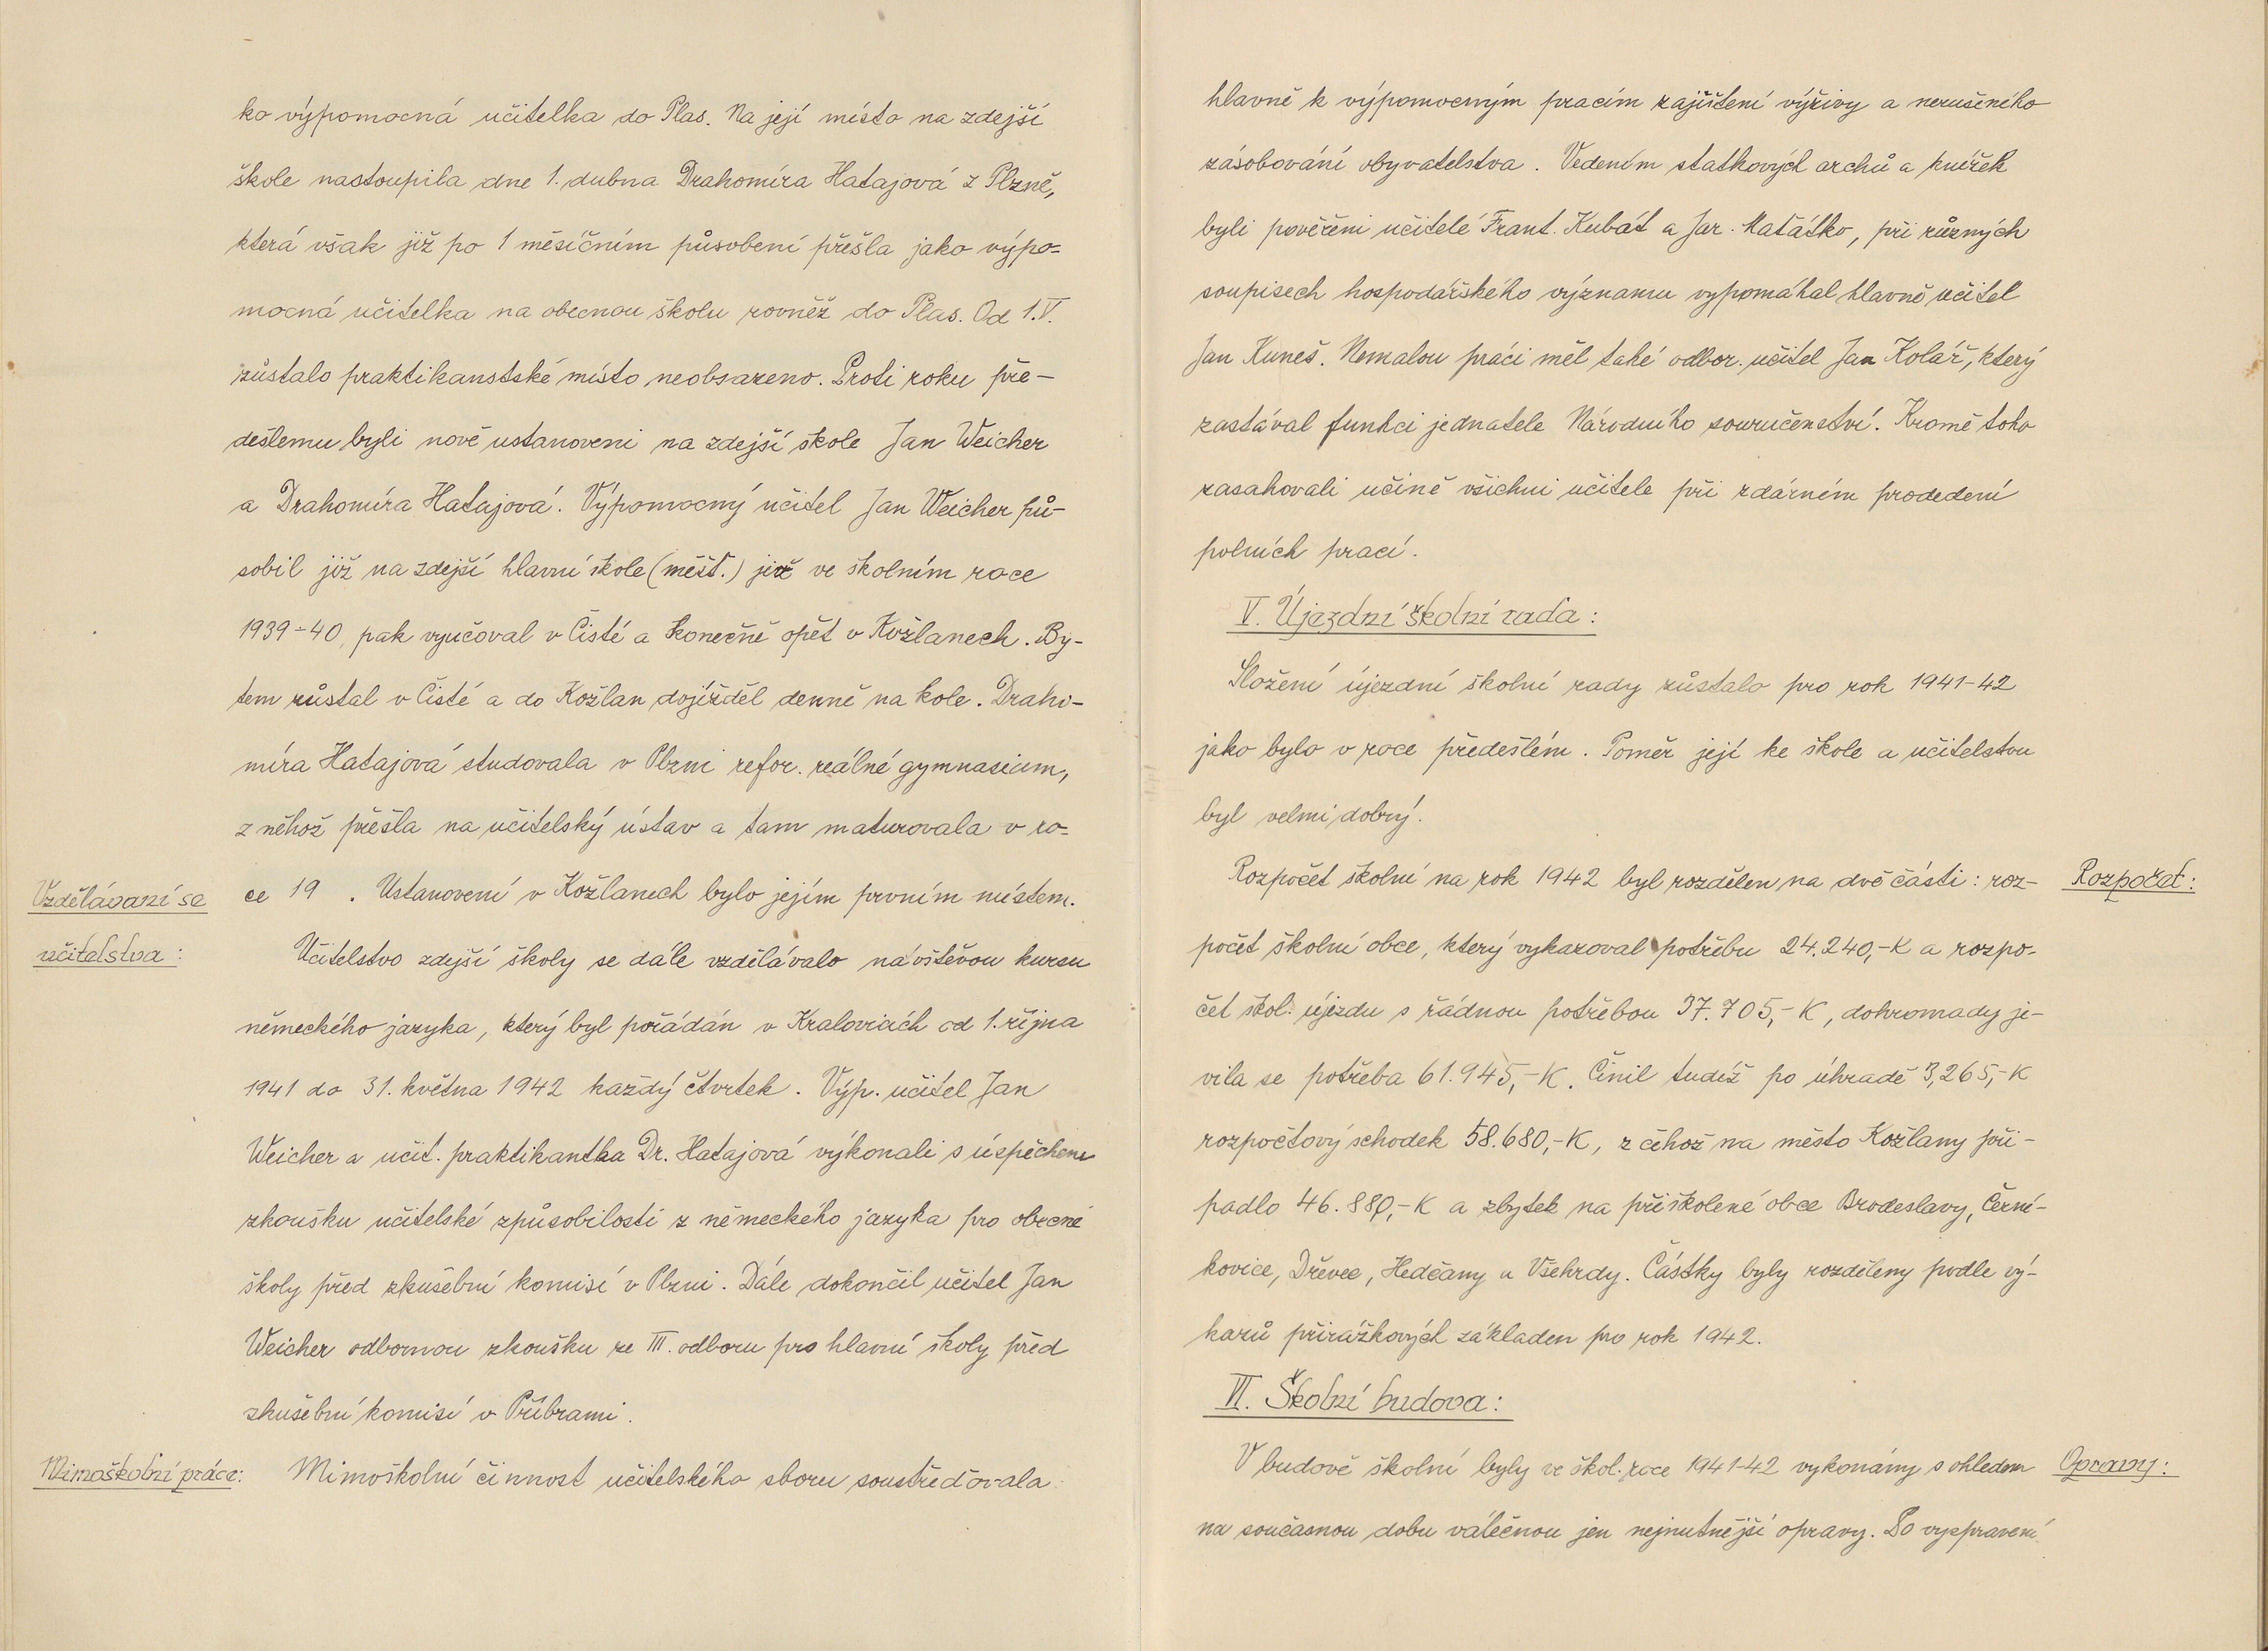 ko výpomocná učitelka do Plas. Na její místo na zdejší
škole nastoupila dne 1. dubna Drahomíra Hatajová z Plzně,
která však již po 1 měsíčním působení přešla jako výpo-
mocná učitelka na obecnou školu rovněž do Plas. Od 1.V.
zůstalo praktikanstské místo neobsazeno. Proti roku pře-
dešlemu byli nově ustanoveni na zdejší škole Jan Weicher
a Drahomíra Hatajová. Výpomocný učitel Jan Weicher pů-
sobil již na zdejší hlavní škole (měšť.) již ve školním roce
1939-40, pak vyučoval v Čisté a konečně opět v Kožlanech. By-
tem zůstal v Čisté a do Kožlan dojížděl denně na kole. Draho-
míra Hatajová studovala v Plzni refor. reálné gymnasium,
z něhož přešla na učitelský ústav a tam maturovala v ro-
Vzdělávaní se
učitelstva:
ce 19 . Ustanovení v Kožlanech bylo jejím prvním místem.
Učitelstvo zdejší školy se dále vzdělávalo návštěvou kursu
německého jazyka, který byl pořádán v Kralovicích od 1. října
1941 do 31. května 1942 každý čtvrtek. Výp. učitel Jan
Weicher a učit. praktikantka Dr. Hatajová výkonali s úspěchem
zkoušku učitelské způsobilosti z německého jazyka pro obecné
školy před zkušební komisí v Plzni. Dále dokončil učitel Jan
Weicher odbornou zkoušku ze III. odboru pro hlavní školy před
zkušební komisí v Příbrami.
Mimoškolní práce:
Mimoškolní činnost učitelského sboru soustřeďovala
hlavně k výpomocným pracím zajištení výživy a nerušeného
zásobování obyvatelstva. Vedením statkových archů a knížek
byli pověřeni učitelé Frant. Kubát a Jar. Maťátko, při různých
soupisech hospodářského významu vypomáhal hlavně učitel
Jan Kuneš. Nemalou práci měl také odbor. učitel Jan Kolář, který
zastával funkci jednatele Národního souručenství. Kromě toho
zasahovali učině všichni učitele při zdárném prodedení
polních prací.
V. Újezdní školní rada:
Složení újezdní školní rady zůstalo pro rok 1941-42
jako bylo v roce předešlém. Poměr její ke škole a učitelstvu
byl velmi dobrý.
Rozpočet školní na rok 1942 byl rozdělen na dvě části: roz-
Rozpočet:
počet školní obce, který vykazoval potřebu 24.240,-K a rozpo-
čet škol. újezdu s řádnou potřebou 37.705,-K, dohromady je-
vila se potřeba 61.945,-K. Činil tudíž po úhradě 3,265,-K
rozpočtový schodek 58.680,-K, z čehož na město Kožlany při-
padlo 46.880,-K a zbytek na přiškolené obce Brodeslavy, Černí-
kovice, Dřevec, Hedčany a Všehrdy. Částky byly rozděleny podle vý-
kazů přirážkových základen pro rok 1942.
VI. Školní budova:
V budově školní byly ve škol. roce 1941-42 vykonány s ohledem
Opravy:
na současnou dobu válečnou jen nejnutnější opravy. Do vyspravení